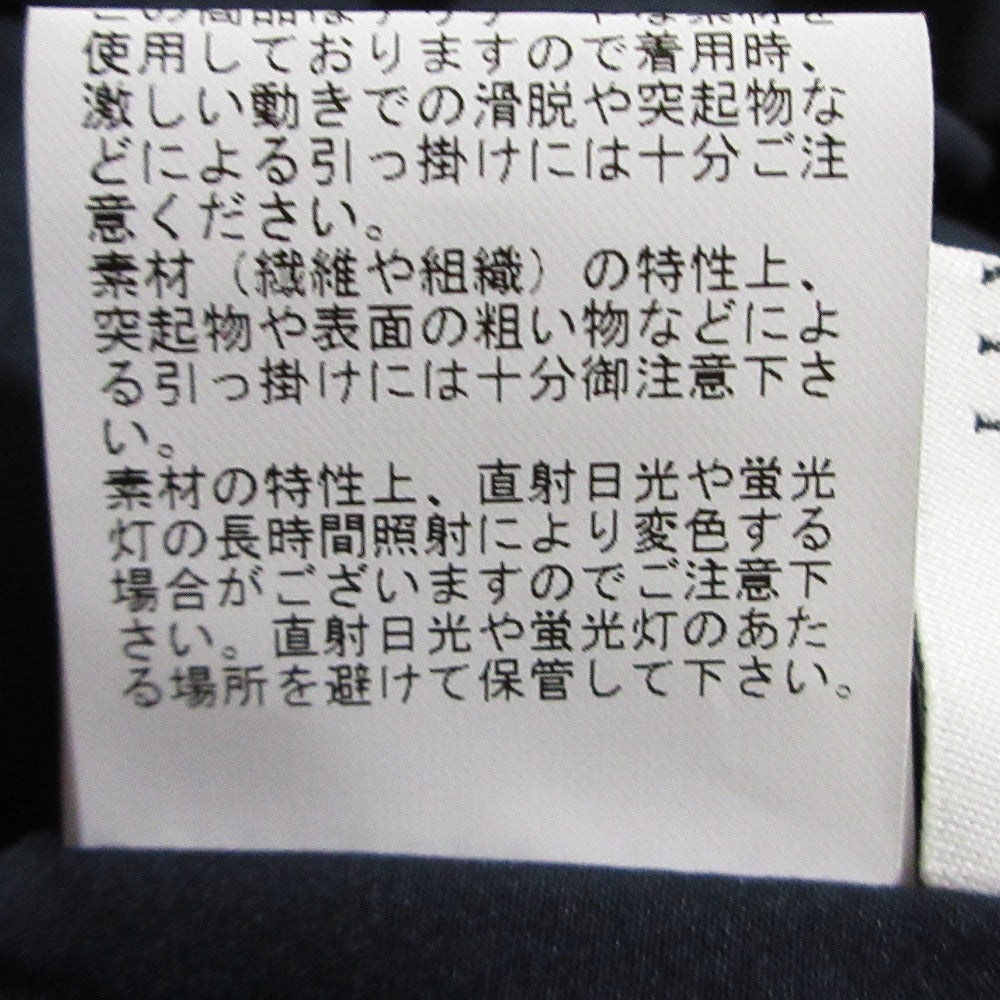 この商品は
な素材を
使用しておりますので着用時、
激しい動きでの滑脱や突起物な
どによる引っ掛けには十分ご注
意ください。
素材（繊維や組織）の特性上、
突起物や表面の粗い物などによ
る引っ掛けには十分御注意下さ
い。
素材の特性上、直射日光や蛍光
灯の長時間照射により変色する
場合がございますのでご注意下
さい。直射日光や蛍光灯のあた
る場所を避けて保管して下さい。